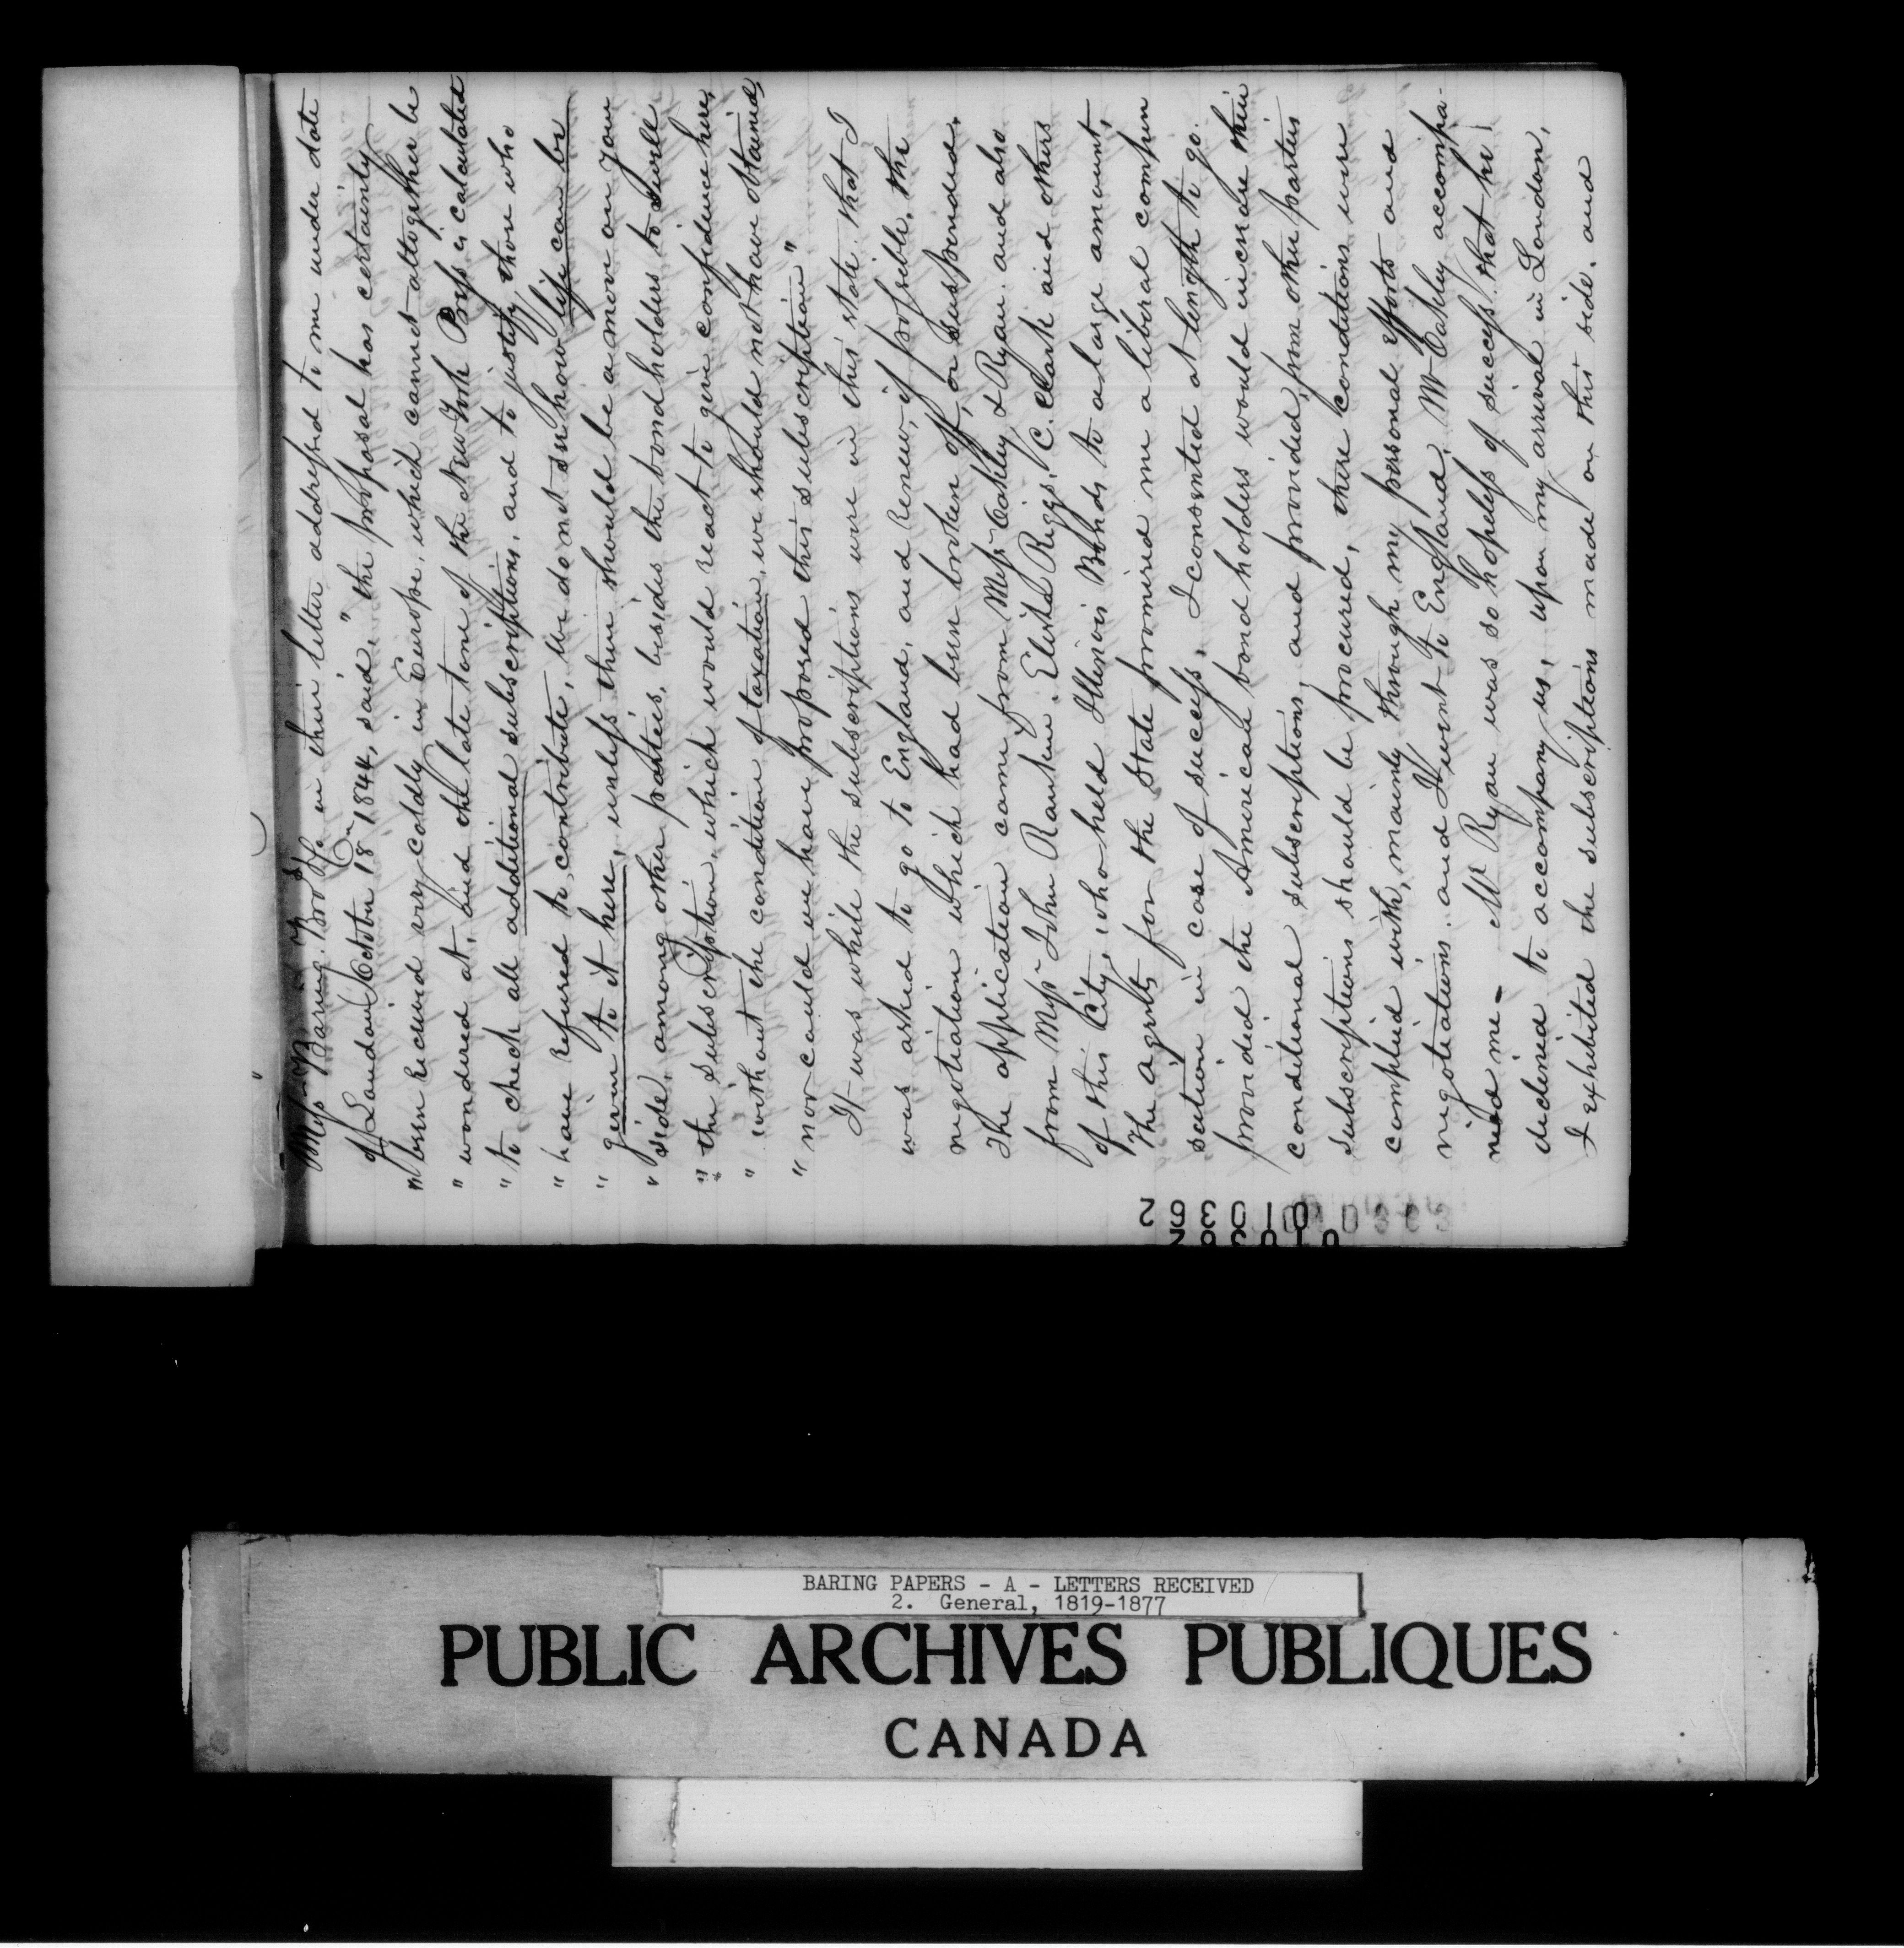 Messrs Baring Bros & Co in their letter addressed to me under date
of London October 18th 1844, said, "the proposal has certainly
"been received very coldly in Europe, which cannot altogether be
"wondered at, and the late tone of the New York Press is calculated
"to check all additional subscriptions, and to justify those who
"have refused to contribute, we do not see how life can be
"given to it here, unless there should be a move on your
"side, among other parties, besides the bondholders to swell
"the subscription, which would react to give confidence here,
"without the condition of taxation, we should not have obtained,
"nor could we have proposed this subscription"
It was while the subscriptions were in this state that I
was asked to go to England, and renew, if possible, the
negotiation which had been broken off, or suspended.
The application came from Messrs Oakley & Ryan, and also
from Messrs John Rankin, Elisha Riggs, C. Clark and others
of this City, who held Illinois Bonds to a large amount,
The agents for the State promised me a liberal compen
sation in case of success, I consented at length to go.
provided the American bond holders would increase their
conditional subscriptions, and provided, from other parties
subscriptions should be procured, these conditions were
complied with, mainly through my personal efforts and
negotiations. and I went to England, Mr Oakley accompa-
nied me – Mr Ryan was so hopeless of success that he
declined to accompany us, upon my arrival in London,
I exhibited the subscriptions made on this side, and
010362
BARING PAPERS - A - LETTERS RECEIVED
2. General, 1819-1877
PUBLIC ARCHIVES PUBLIQUES
CANADA